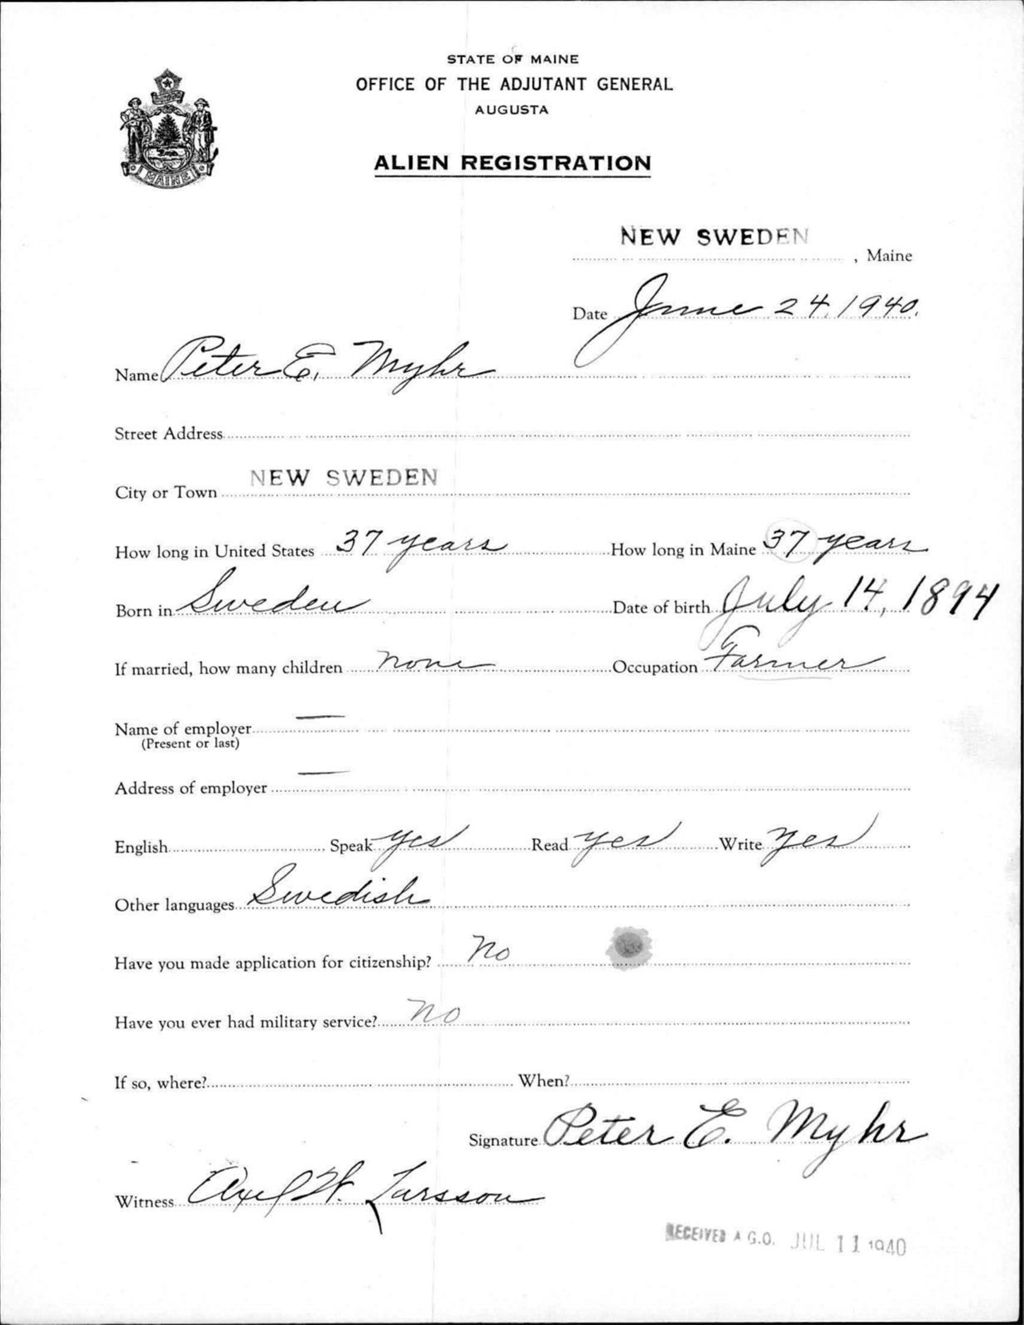 STATE OF MAINE
OFFICE OF THE ADJUTANT GENERAL
AUGUSTA
MAINE
ALIEN REGISTRATION
NEW SWEDEN, Maine
Date June 24, 1940.
Name Peter E. Myhr
Street Address
City or Town NEW SWEDEN
How long in United States 37 years How long in Maine 37 years
Born in Sweden Date of birth July 14, 1894
If married, how many children none Occupation Farmer
Name of employer —
(Present or last)
Address of employer —
English Speak yes Read yes Write yes
Other languages Swedish
Have you made application for citizenship? No
Have you ever had military service? No
If so, where? When?
Signature Peter E. Myhr
Witness Axel W. Larsson
RECEIVED A.G.O. JUL 11 1940